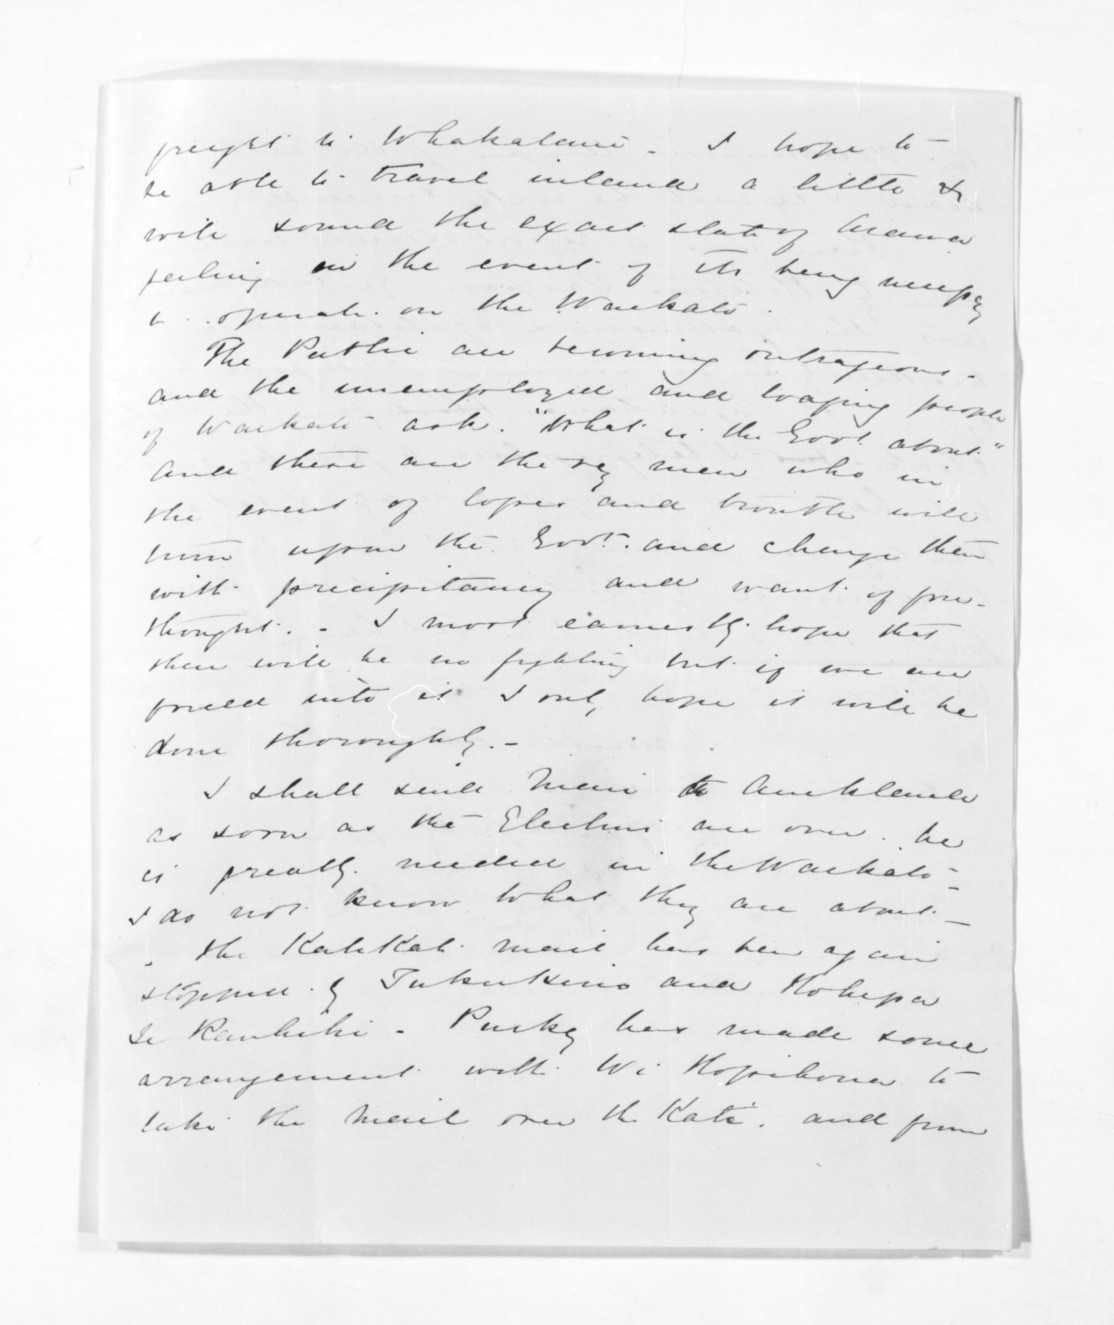 freight to Whakatane - I hope to
be able to travel inland a little &
will sound the exact state of Arawa
feeling in the event of its being necessary
to operate on the Waikato.
The Public are becoming outrageous -
and the unemployed and loafing people
of Waikato ask. "What is the Govt. about"
and these are the very men who in
the event of losses and trouble will
turn upon the Govt. and charge them
with precipitancy and want of fore-
thought. - I most earnestly hope that
there will be no fighting but if we are
forced into it I only hope it will be
done thoroughly. -
I shall send Mair to Auckland
as soon as the Elections are over. he
is greatly needed in the Waikato -
I do not know what they are about -
The Kati Kati mail has been again
stopped by Tukukino and Hohepa
Te Rauhihi - Puckey has made some
arrangement with Wi Hopihona to
take the Mail over the Kati. and from